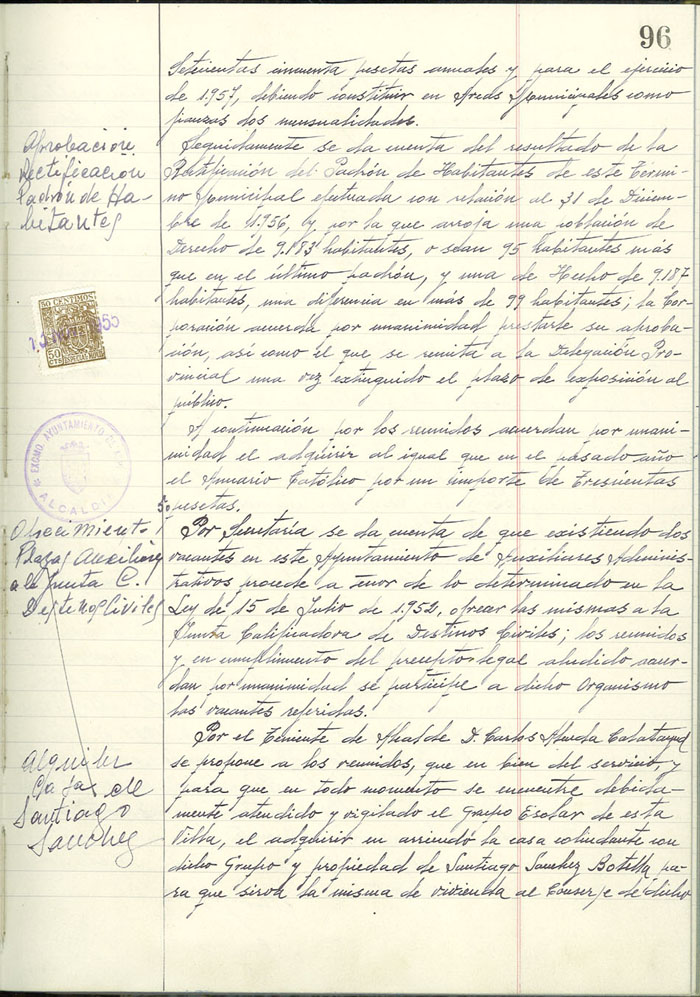 96
Setecientas cincuenta pesetas anuales y para el ejercicio
de 1.957, debiendo constituir en Arcas Municipales como
fianza dos mensualidades.
Aprobación
Rectificación
Padrón de Ha-
bitantes
Seguidamente se da cuenta del resultado de la
Rectificación del Padrón de Habitantes de este Térmi-
no Municipal efectuada con relación al 31 de Diciem-
bre de 1.956, y por la que arroja una población de
Derecho de 9.183 habitantes, o sean 95 habitantes más
que en el último padrón, y una de Hecho de 9.187
habitantes, una diferencia en más de 99 habitantes; la Cor-
poración acuerda por unanimidad prestarle su aproba-
ción, así como el que se remita a la Delegación Pro-
vincial una vez extinguido el plazo de exposición al
público.
50 CENTIMOS
50
CTS ESPECIAL MOVIL
EXCMO. AYUNTAMIENTO DE
ALCALDIA
A continuación por los reunidos acuerdan por unani-
midad el adquirir al igual que en el pasado año
el Anuario Católico por un importe de Trescientas
pesetas.
Ofrecimiento
Plazas Auxiliares
a la Junta C.
Destinos Civiles
Por Secretaría se da cuenta de que existiendo dos
vacantes en este Ayuntamiento de Auxiliares Adminis-
trativos procede a tenor de lo determinado en la
Ley de 15 de Julio de 1.952, ofrecer las mismas a la
Junta Calificadora de Destinos Civiles; los reunidos
y en cumplimento del precepto legal aludido acuer-
dan por unanimidad se participe a dicho Organismo
las vacantes referidas.
Alquiler
Casa de
Santiago
Sanchez
Por el Teniente de Alcalde D. Carlos Calatayud
se propone a los reunidos, que en bien del servicio y
para que en todo momento se encuentre debida-
mente atendido y vigilado el Grupo Escolar de esta
Villa, el adquirir en arriendo la casa colindante con
dicho Grupo y propiedad de Santiago Sanchez Botella pa-
ra que sirva la misma de vivienda al Conserje de dicho